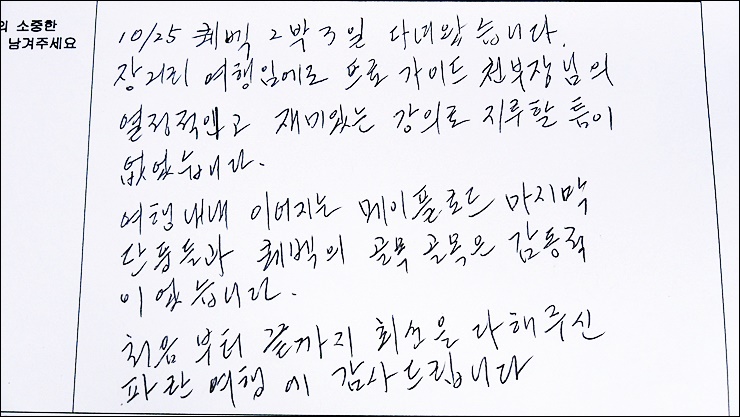 의 소중한
남겨주세요
10/25 퀘벡 2박3일 다녀왔습니다.
장거리 여행임에도 프로 가이드 천부장님의
열정적이고 재미있는 강의로 지루할 틈이
없었습니다.
여행내내 이어지는 메이플로드 마지막
단풍들과 퀘벡의 골목 골목은 감동적
이었습니다.
처음 부터 끝까지 최선을 다해주신
파란여행에 감사드립니다